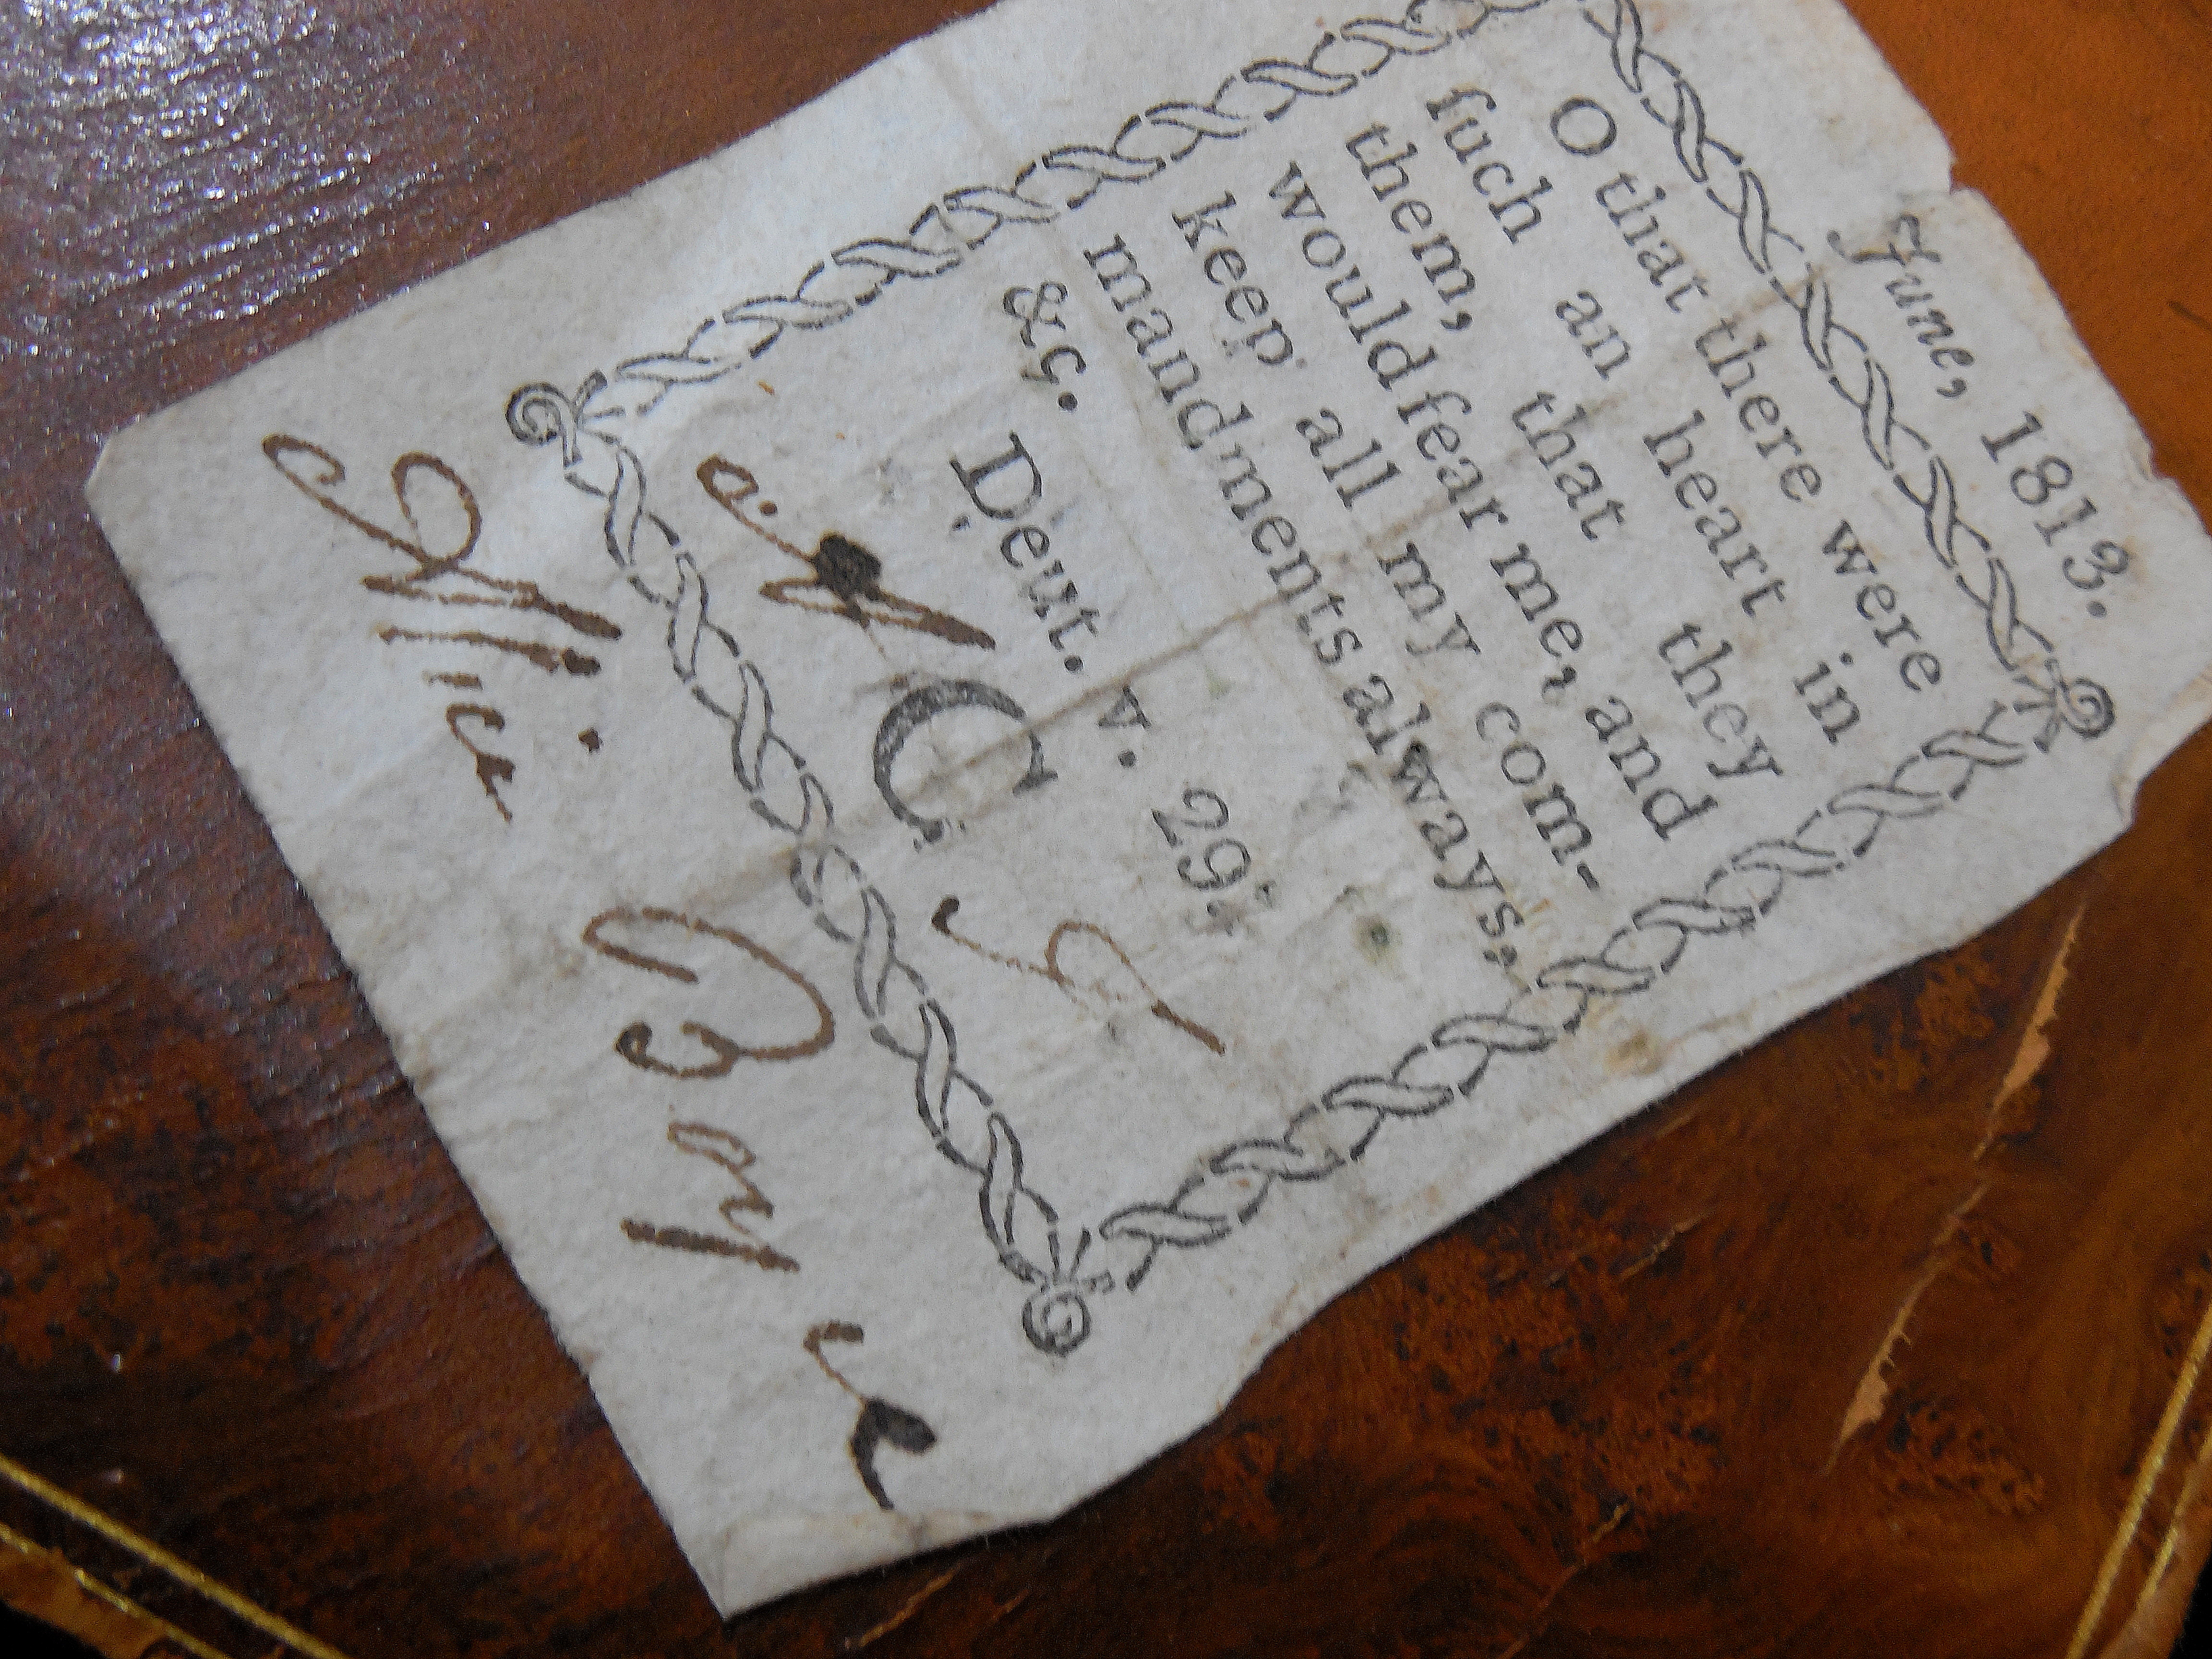 June, 1813.
O that there were
ſuch an heart in
them, that they
would fear me, and
keep all my com-
mandments always,
&c. Deut. v. 29.
C